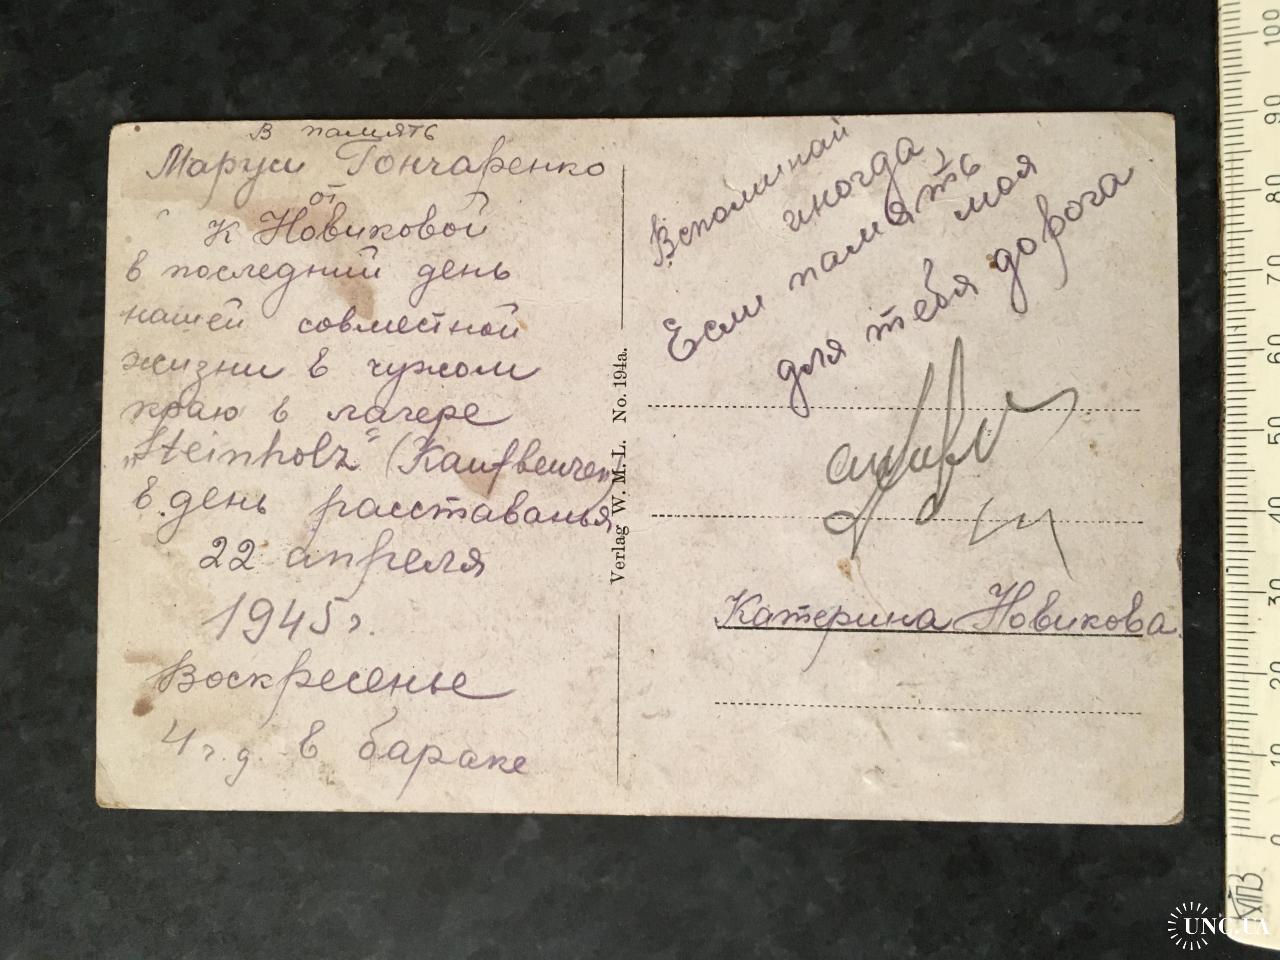 В память
Маруси Гончаренко
от
К Новиковой
в последний день
нашей совместной
жизни в чужом
краю в лагере
„Steinholz“ (Kaufbeuren)
в день расставанья
22 апреля
1945 г.
Воскресенье
4 ч. д. в бараке
Verlag W. M. L. No. 194a.
Вспоминай
иногда,
Если память моя
для тебя дорога
Катерина Новикова.
100
90
80
70
60
50
40
30
20
10
0
UNC.UA